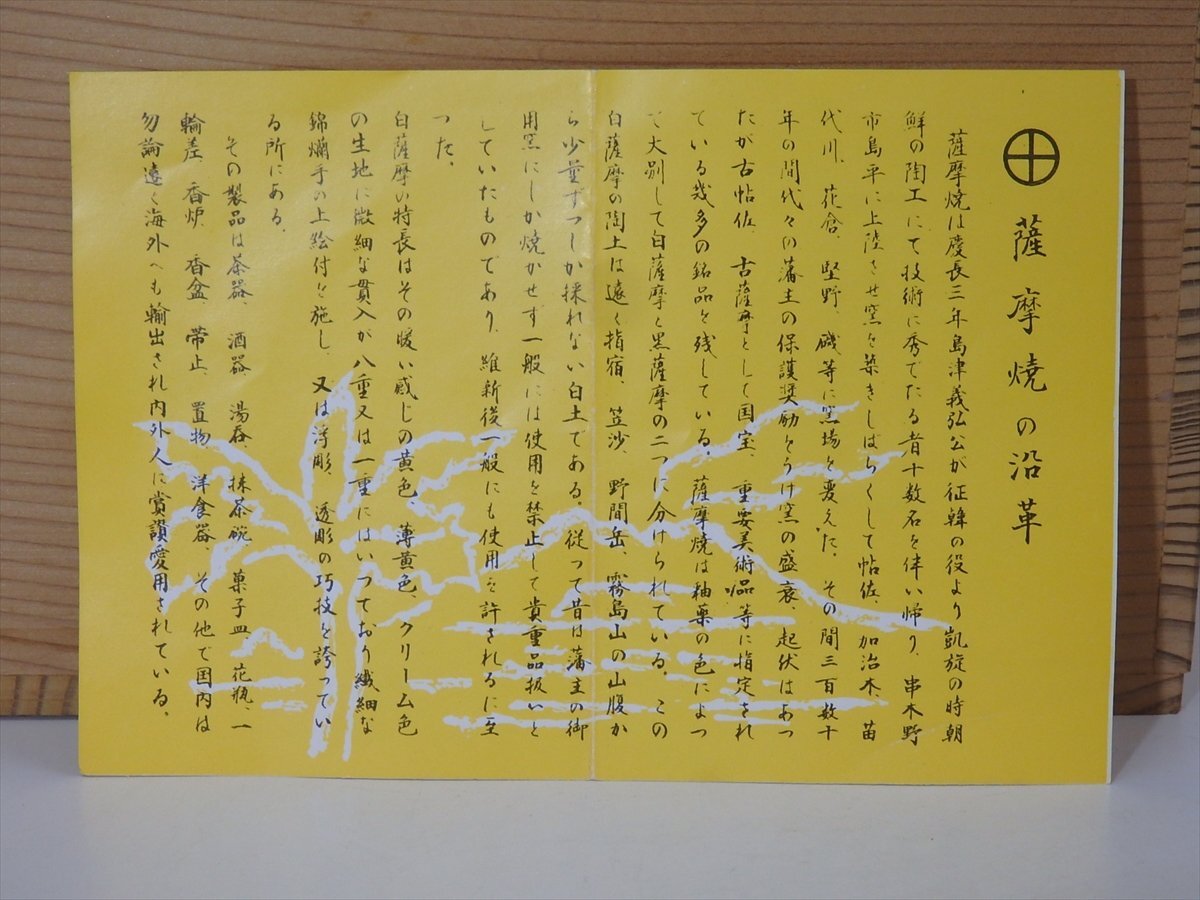 薩摩焼の沿革
薩摩焼は慶長三年島津義弘公が征韓の役より凱旋の時朝
鮮の陶工にて技術に秀でたる者十数名を伴い帰り、串木野
市島平に上陸させ窯を築きしばらくして帖佐、加治木、苗
代川、花倉、堅野、磯等に窯場を変えた。その間三百数十
年の間代々の藩主の保護奨励をうけ窯の盛衰、起伏はあつ
たが古帖佐、古薩摩として国宝、重要美術品等に指定され
ている幾多の銘品を残している。薩摩焼は釉薬の色によつ
て大別して白薩摩と黒薩摩の二つに分けられている。この
白薩摩の陶土は遠く指宿、笠沙、野間岳、霧島山の山腹か
ら少量ずつしか採れない白土である。従って昔は藩主の御
用窯にしか焼かせず一般には使用を禁止して貴重品扱いと
していたものであり、維新後一般にも使用を許されるに至
つた。
白薩摩の特長はその暖い感じの黄色、薄黄色、クリーム色
の生地に微細な貫入が八重又は一重にはいつており繊細な
錦爛手の上絵付を施し、又は浮彫、透彫の巧技を誇ってい
る所にある。
その製品は茶器、酒器、湯呑、抹茶碗、菓子皿、花瓶、一
輪差、香炉、香盆、帯止、置物、洋食器、その他で国内は
勿論遠く海外へも輸出され内外人に賞讃愛用されている。